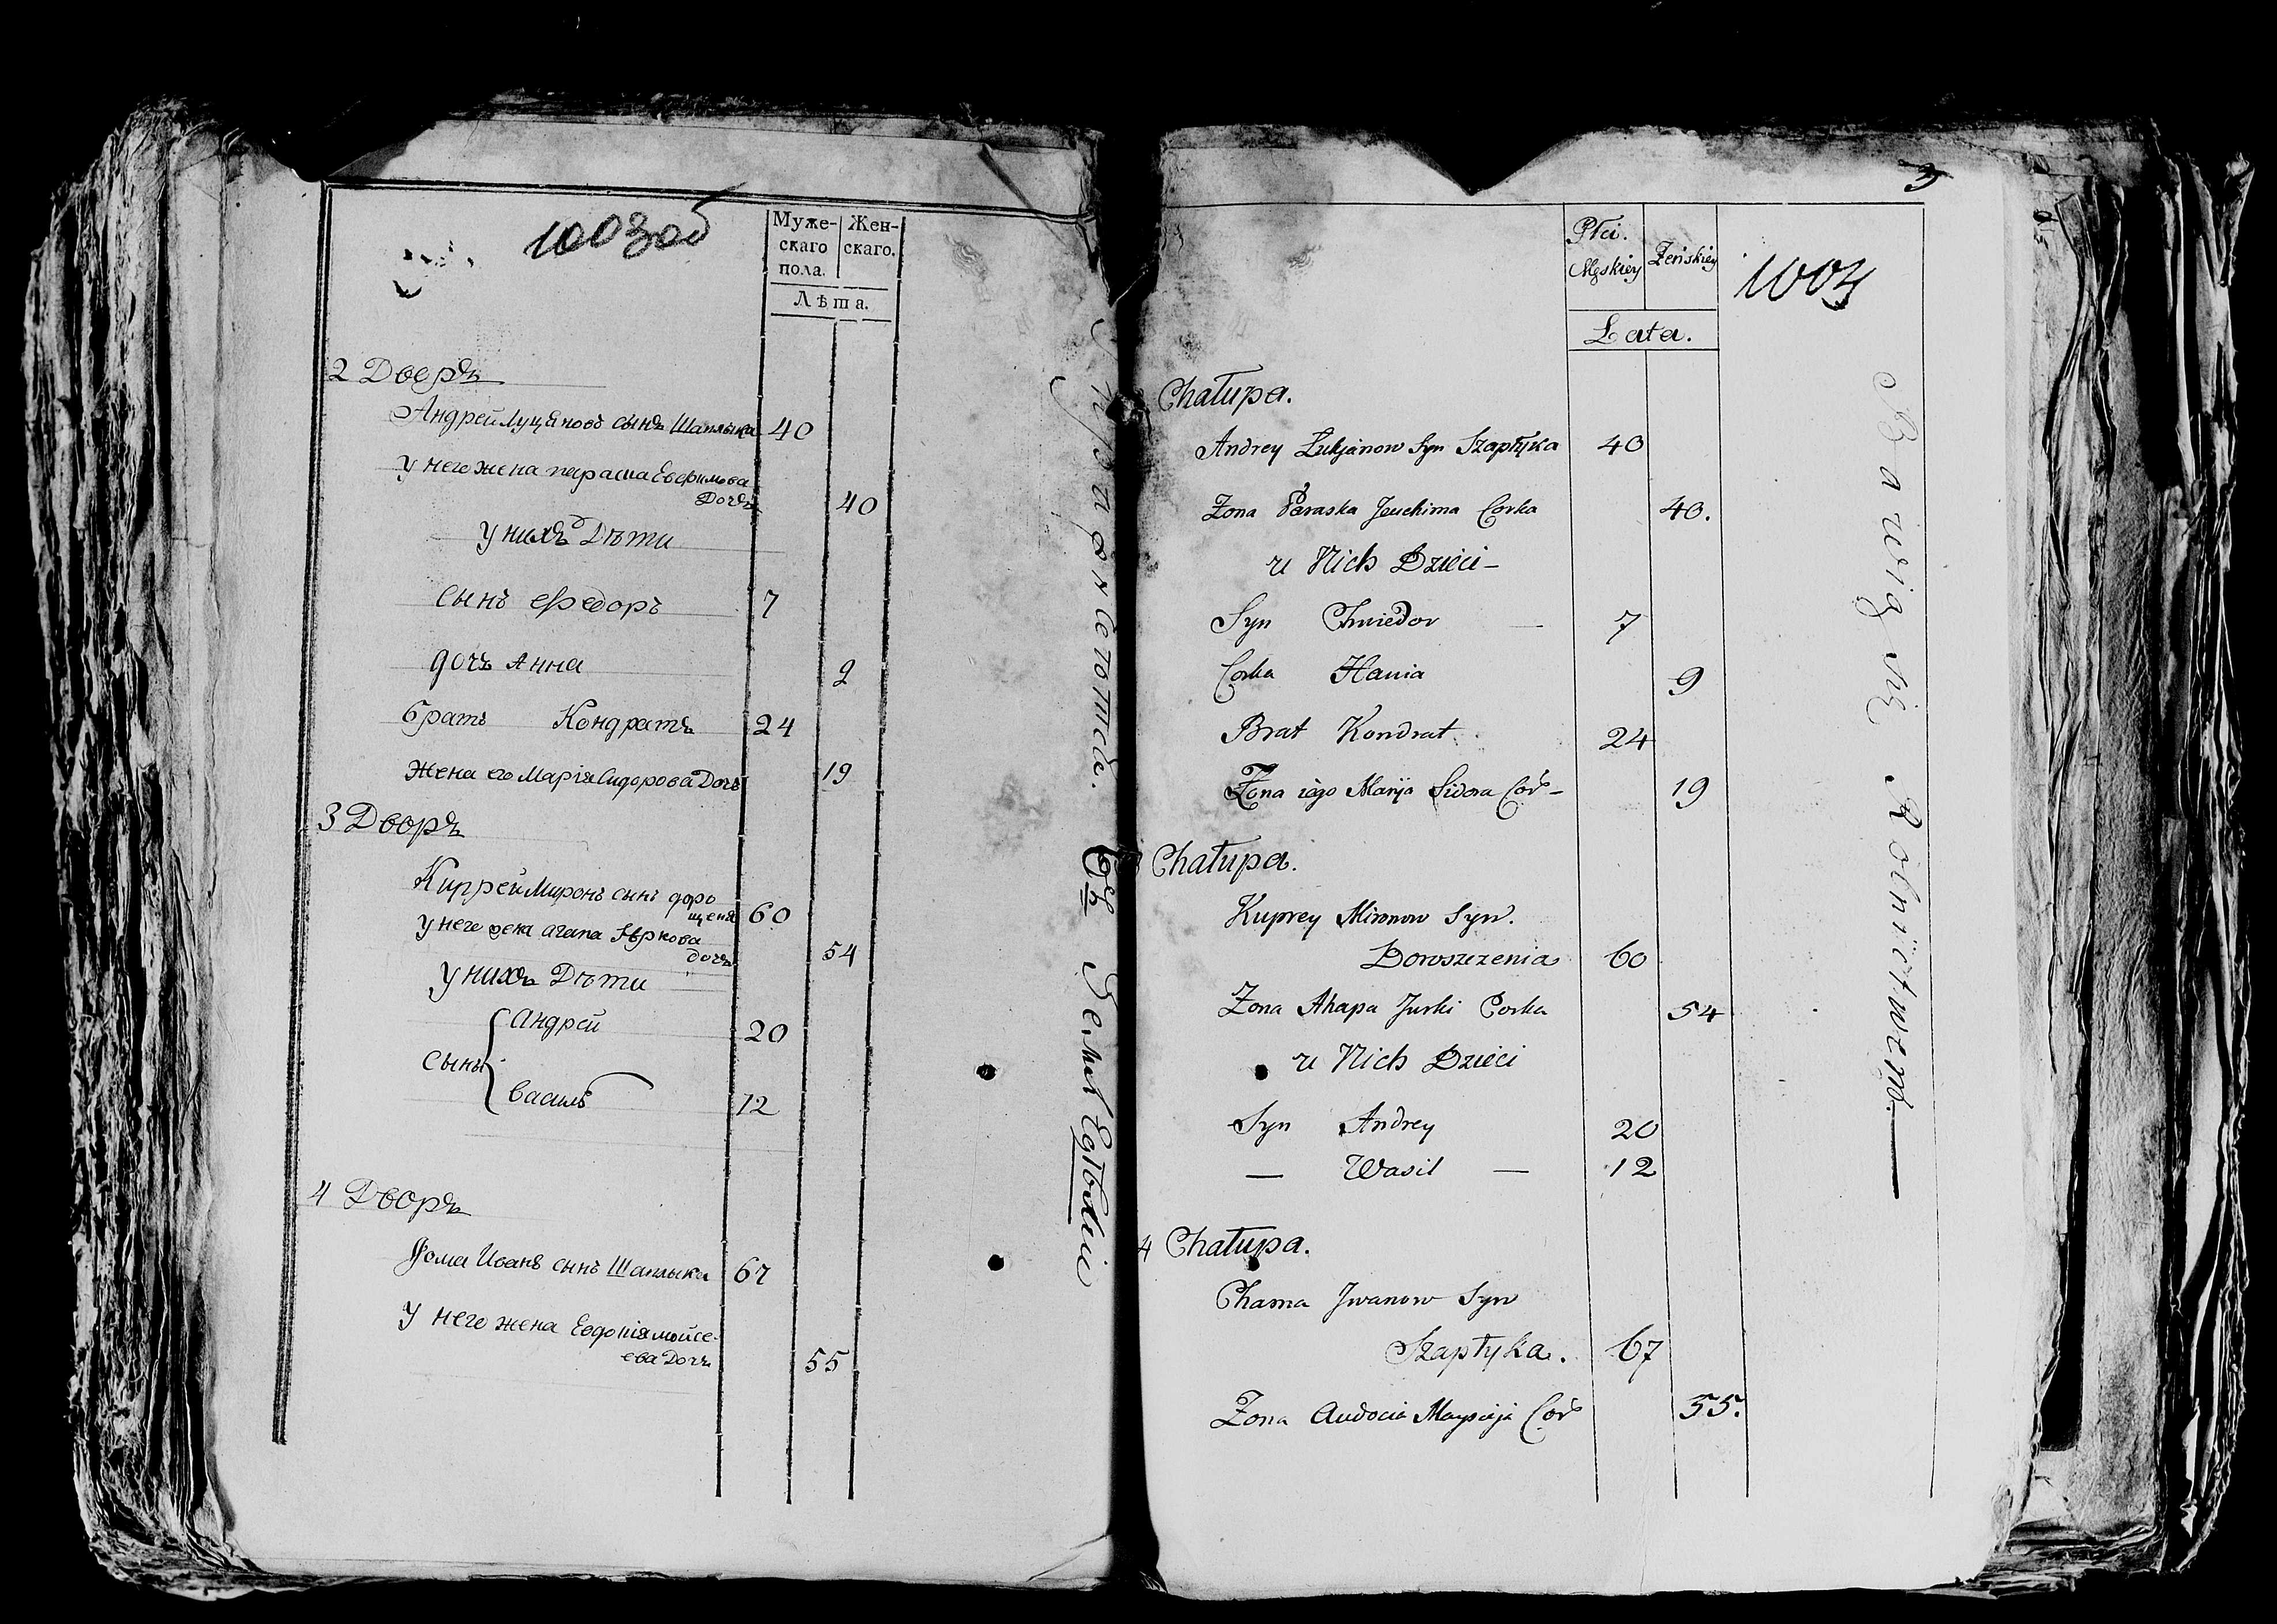 1003об
Муже- Жен-
скаго скаго.
пола.
Лѣта.
2 Дворъ
Андрей Луцяновъ сынъ Шаплыка 40
У него жена параска Евфимова
Дочъ 40
У нихъ Дѣти
сынъ Федоръ 7
дочъ Анна 9
братъ Кондратъ 24
Жена его Марія Сидорова Дочъ 19
3 Дворъ
Купрей Миронъ сынъ доро
щеня 60
У него жена агапа Юркова
дочъ 54
У нихъ Дѣти
сынъ Андрей 20
Василь 12
4 Дворъ
Фома Иванъ сынъ Шаплыка 67
У него жена Евдокія мойсе-
ева Дочъ 55
3
Płci.
Męskiey Żeńskiey
1004
Lata.
Chałupa.
Andrey Łukjanow Syn Szapłyka 40
Żona Paraska Jeuchima Corka 40.
u Nich Dzieci -
Syn Chwiedor — 7
Corka Hania 9
Brat Kondrat 24
Żona iego Marija Sidora Cór- 19
Chałupa.
Kuprey Mironow Syn.
Doroszczenia 60
Żona Ahapa Jurki Corka 54
u Nich Dzieci
Syn Andrey 20
— Wasil — 12
4 Chałupa.
Chama Jwanow Syn
Szapłyka. 67
Żona Audocia Maysieja Cór 55.
Bawią się Rolnictwem.